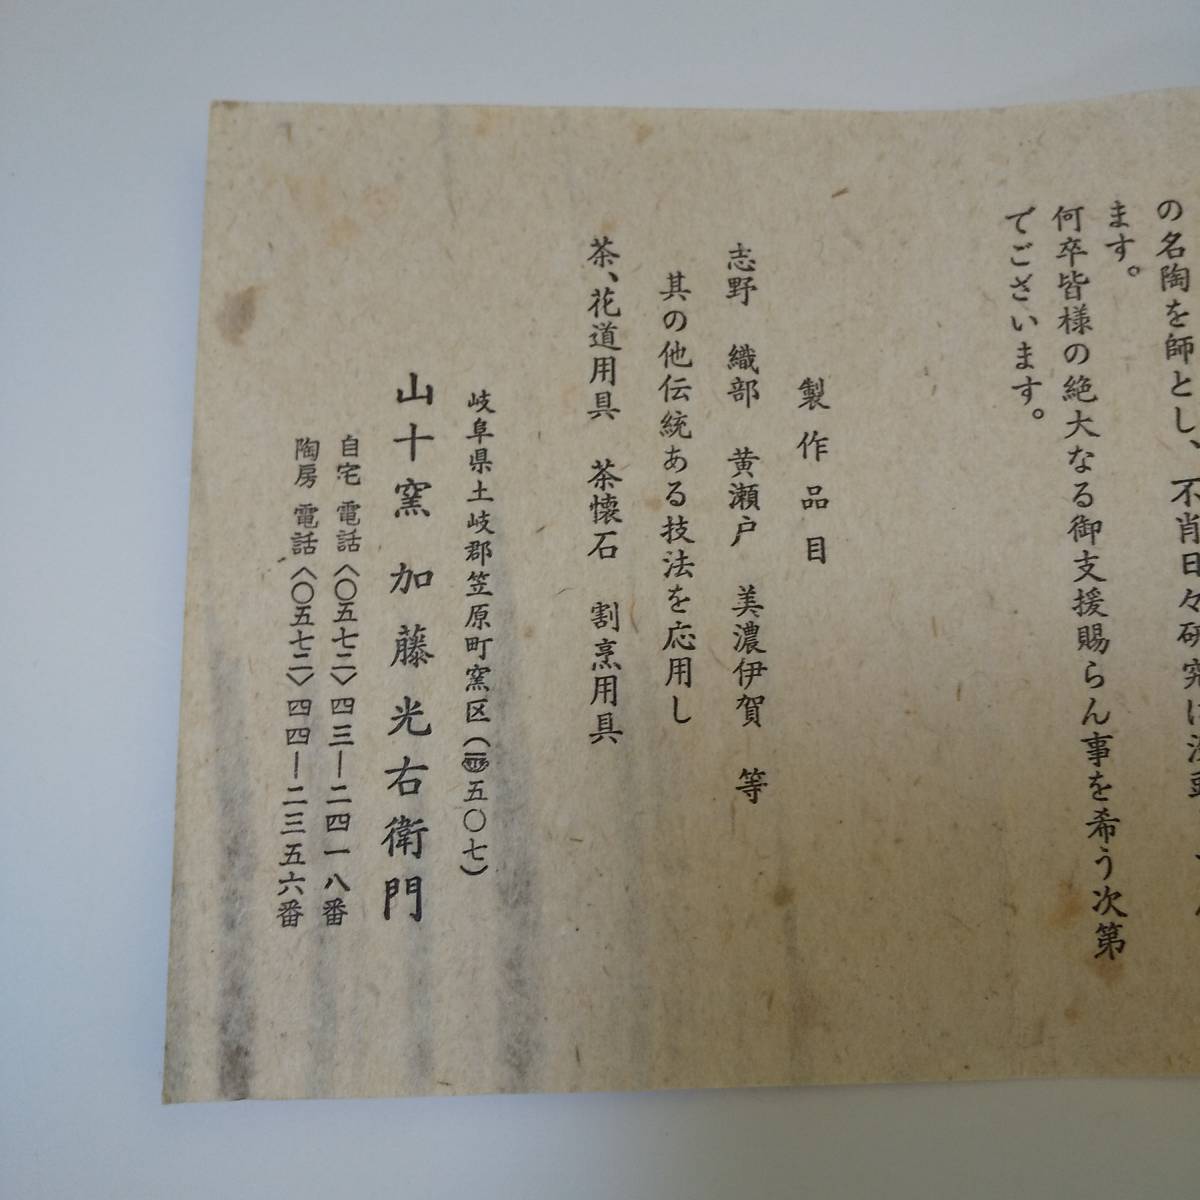 の名陶を師とし、不肖日々研究に没頭
ます。
何卒皆様の絶大なる御支援賜らん事を希う次第
でございます。
製作品目
志野 織部 黄瀬戸 美濃伊賀 等
其の他伝統ある技法を応用し
茶、花道用具 茶懐石 割烹用具
岐阜県土岐郡笠原町窯区(〒五〇七)
山十窯 加藤光右衛門
自宅 電話〈〇五七二〉四三―二四一八番
陶房 電話〈〇五七二〉四四―二三五六番